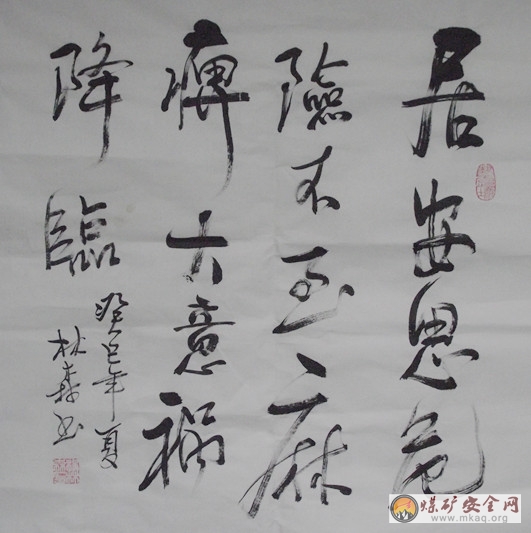 居安思危
險不至麻
痺大意禍
降臨
癸巳年夏
林森书
煤矿安全网
www.mkaq.org